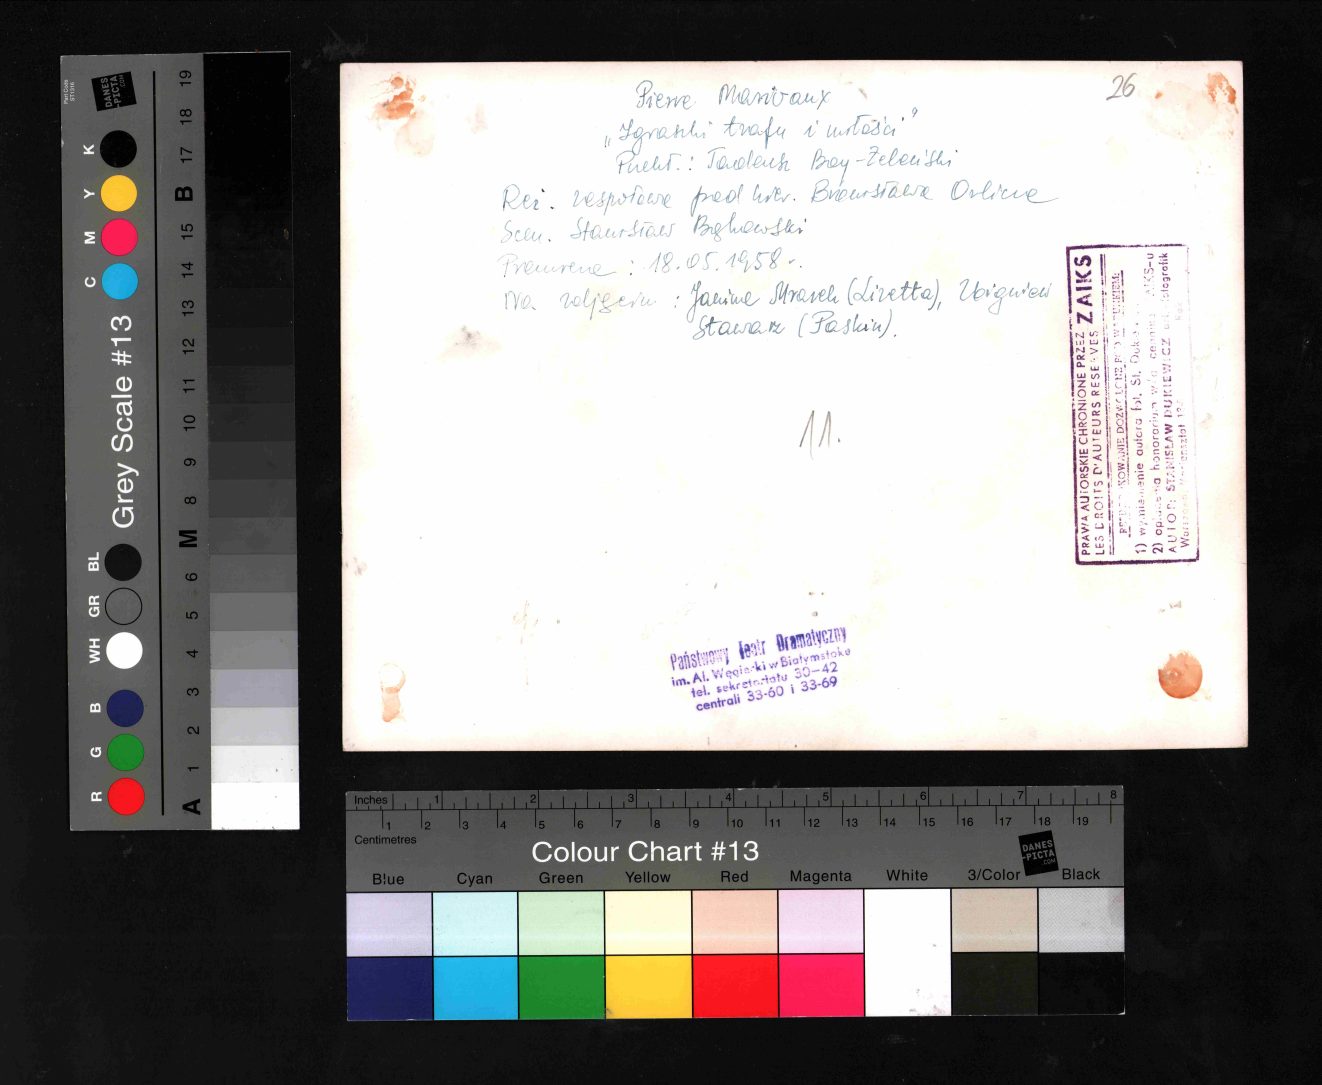 26
Pierre Marivaux
„Igraszki trafu i miłości”
Przekł.: Tadeusz Boy-Żeleński
Reż. zespołowa pod kier. Bronisława Orlicza
Scen. Stanisław Bąkowski
Premiera: 18.05.1958 r.
Na zdjęciu: Janina Mrazek (Lizetta), Zbigniew
Stawarz (Paskin).
11.
PRAWA AUTORSKIE CHRONIONE PRZEZ ZAIKS
LES DROITS D'AUTEURS RESERVES
1) wymienienie autora fot. St. Dukie
2) opłacenia honorarium wg cennika ZAIKS-u
AUTOR: STANISŁAW DUKIEWICZ art. fotografik
Państwowy Teatr Dramatyczny
im. Al. Węgierki w Białymstoku
tel. sekretariatu 30-42
centrali 33-60 i 33-69
DANES
-PICTA
.COM
Grey Scale #13
K Y M C
BL GR WH B G R
19 18 17 B 15 14 13 12 11 10 9 8 M 6 5 4 3 2 1 A
Inches 1 2 3 4 5 6 7 8
1 2 3 4 5 6 7 8 9 10 11 12 13 14 15 16 17 18 19
Centimetres
Colour Chart #13
DANES
-PICTA
.COM
Blue Cyan Green Yellow Red Magenta White 3/Color Black